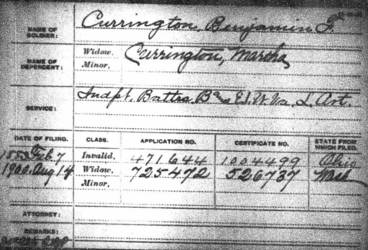 NAME OF SOLDIER: Currington, Benjamin F.
NAME OF DEPENDENT: Widow, Currington, Martha
Minor,
SERVICE: Indpt. Battra. E, W. Va. L. Art.
DATE OF FILING. CLASS. APPLICATION NO. CERTIFICATE NO. STATE FROM WHICH FILED.
Feb. 7 Invalid, 471644 1004499 Ohio
1900, Aug 14 Widow, 725472 526737
Minor,
ATTORNEY:
REMARKS: